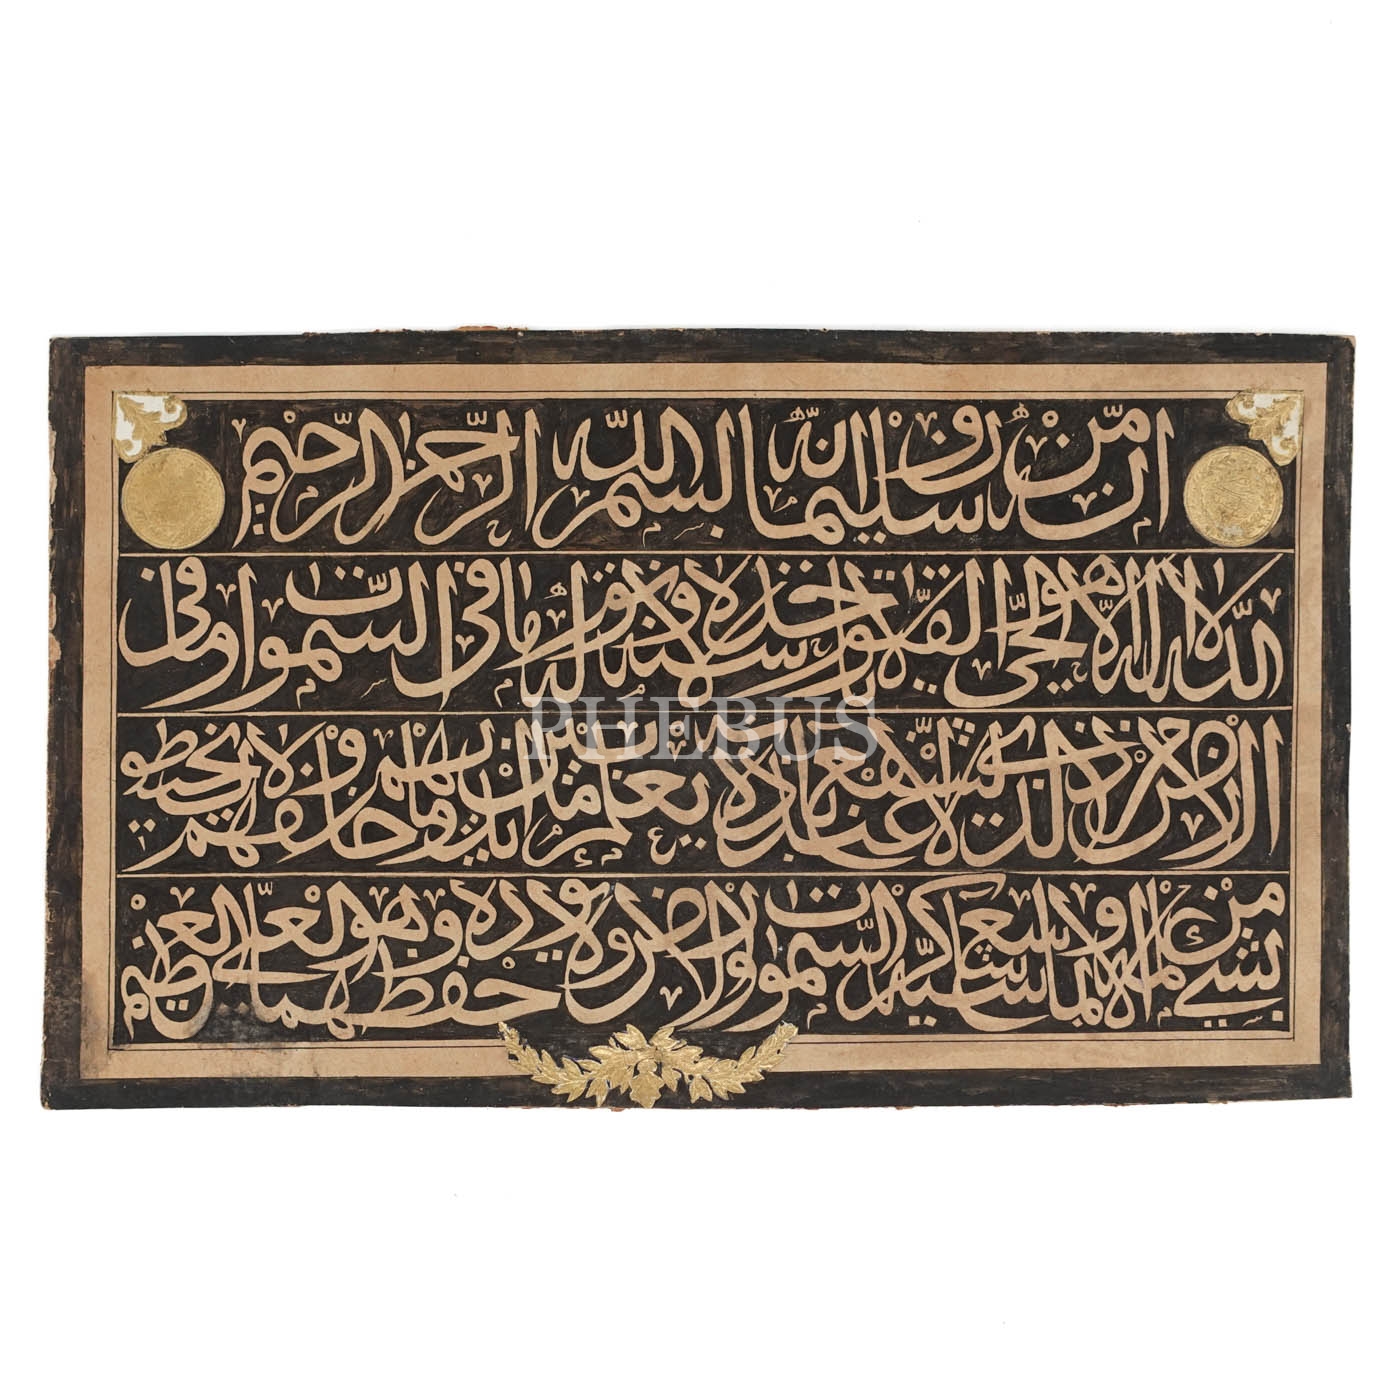 انه من سليمان وانه بسم الله الرحمن الرحيم
الله لا اله الا هو الحي القيوم لا تأخذه سنة ولا نوم له ما في السموات وما في
الارض من ذا الذي يشفع عنده الا باذنه يعلم ما بين ايديهم وما خلفهم ولا يحيطون
بشيء من علمه الا بما شاء وسع كرسيه السموات والارض ولا يؤده حفظهما وهو العلي العظيم
PHEBUS